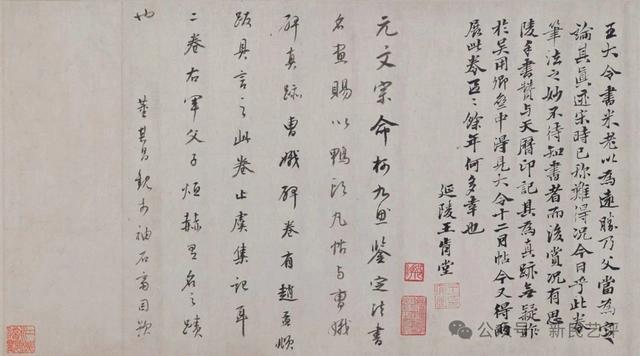 王大令書米老以為遠勝乃父當為定
論其真迹宋時已稱難得況今日乎此卷
筆法之妙不待知書者而後賞況有思
陵手書贊與天曆印記其為真跡無疑昨
於吳用卿舟中得見大令十二月帖今又得兩
展此卷區〻餘年何多幸也
延陵王肯堂
元文宗命柯九思鑒定法書
名畫賜以鴨頭丸帖與曹娥
碑真跡曹娥碑卷有趙孟頫
跋具言之此卷止虞集記耳
二卷右軍父子烜赫名之蹟
也
董其昌觀於袖石齋因題
公众号 · 新民艺评